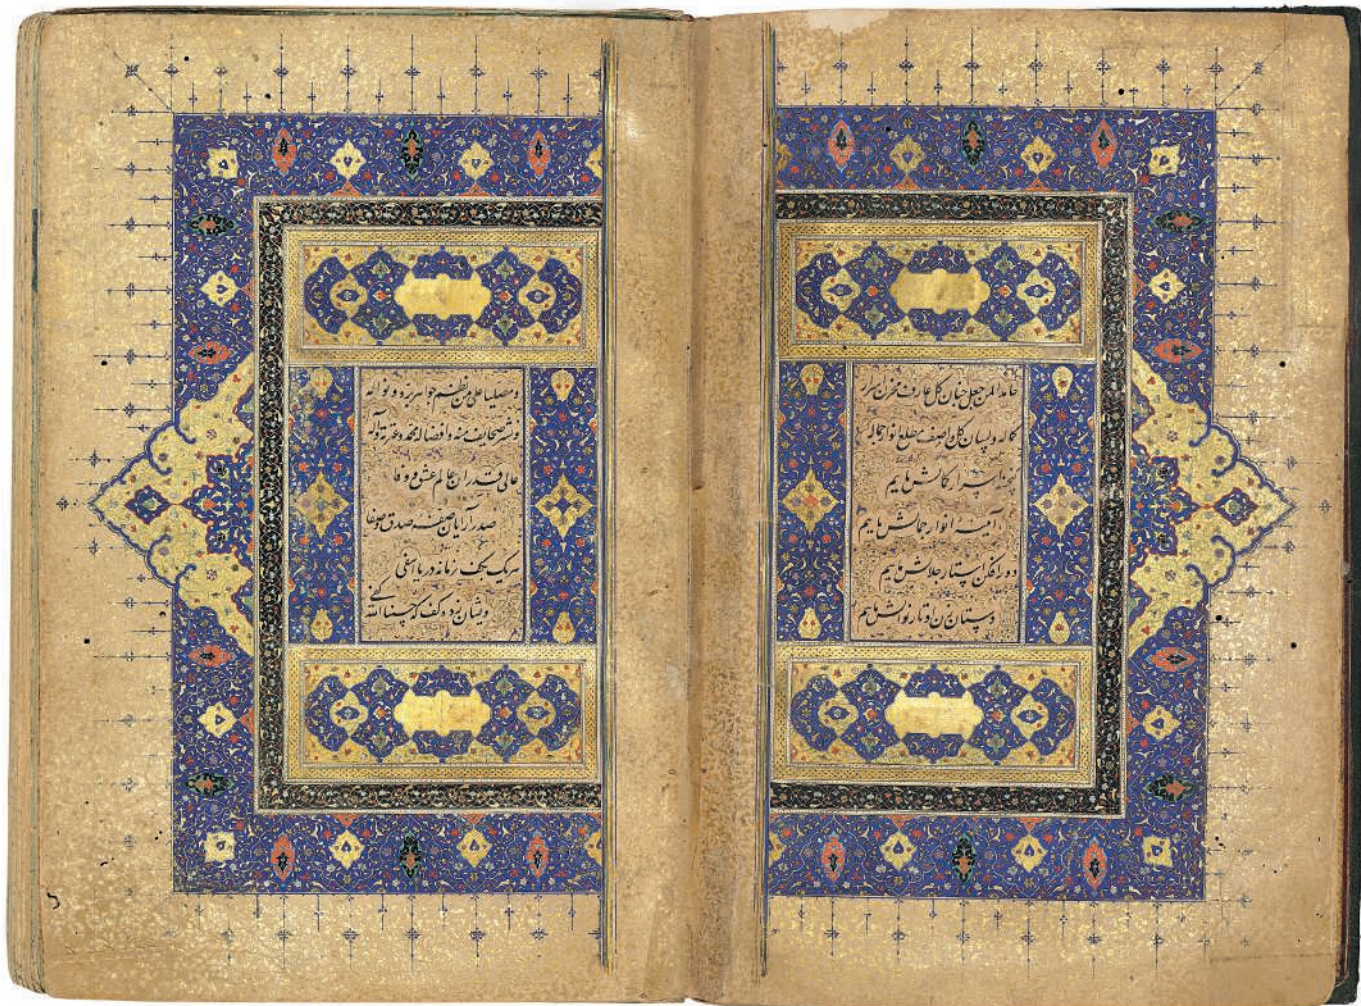 حامدا لمن جعل جنان کل عارف مخزن اسرار
کماله و لسان کل واصف مطلع انوار جماله
گنجینه اسرار کمالش ماییم
آیینه انوار جمالش ماییم
دور افکن استار جلالش ماییم
دستان زن اوتار نوالش ماییم
و مصلیا علی من نظم جواهر بره و نواله
و نشر صحائف منه و افضاله محمد و عترته و آله
عالی قدران عالم عشق و وفا
صدر آرایان صفه صدق و صفا
هر یک بکف زمانه در یا اسفی
وایشان زده کف که حسبنا الله کفی